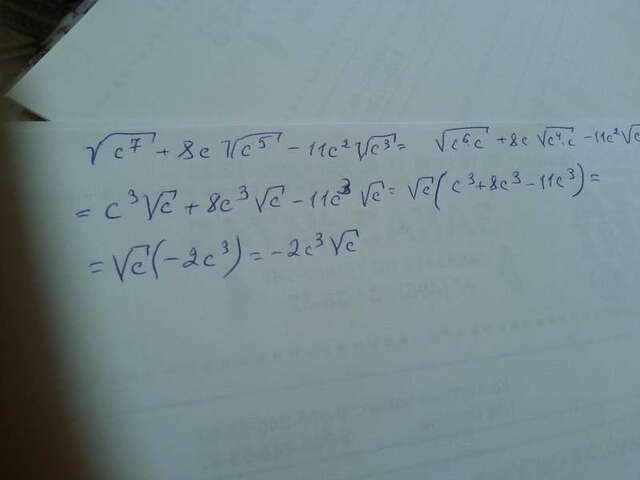 √c⁷ + 8c √c⁵ - 11c² √c³ = √c⁶c + 8c √c⁴·c - 11c² √c
= c³√c + 8c³ √c - 11c³ √c = √c (c³ + 8c³ - 11c³) =
= √c (-2c³) = -2c³ √c